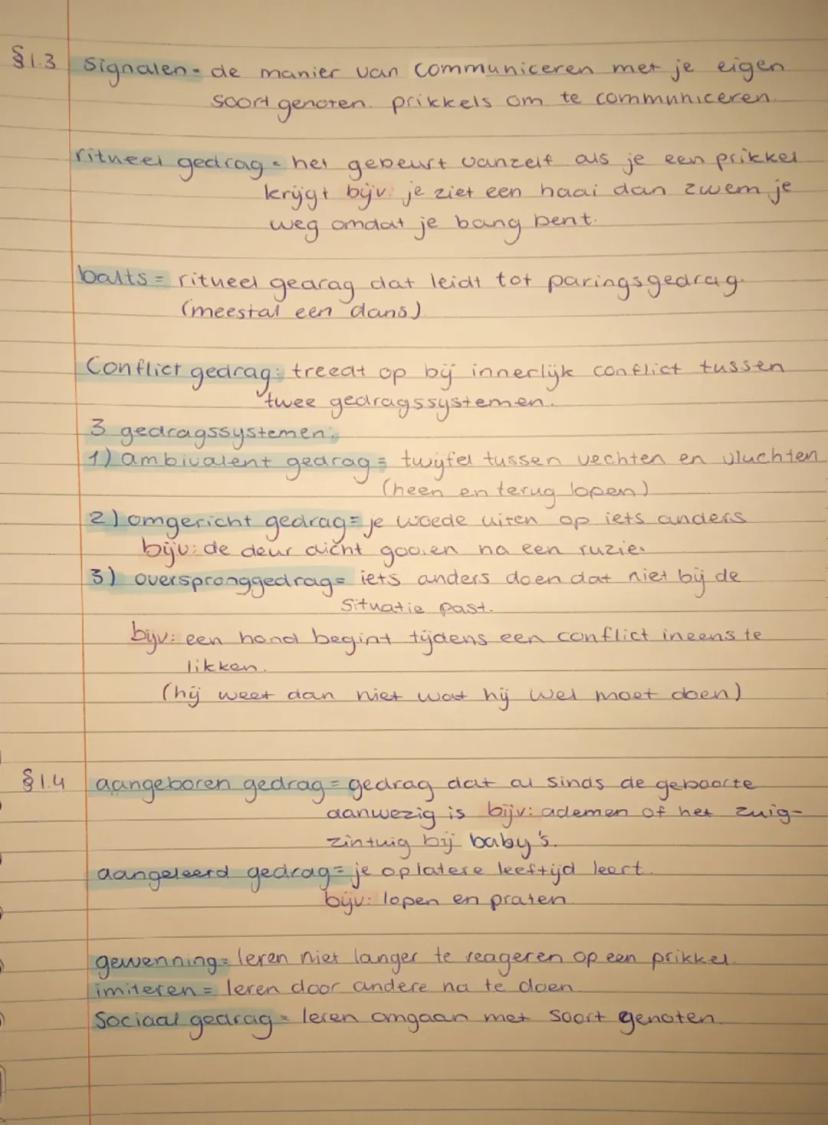 §1.3 Signalen = de manier van communiceren met je eigen
soort genoten. prikkels om te communiceren.
ritueel gedrag = het gebeurt vanzelf als je een prikkel
krijgt bijv: je ziet een haai dan zwem je
weg omdat je bang bent.
balts = ritueel gedrag dat leidt tot paringsgedrag.
(meestal een dans)
Conflict gedrag: treedt op bij innerlijk conflict tussen
twee gedragssystemen.
3 gedragssystemen:
1) ambivalent gedrag = twijfel tussen vechten en vluchten
(heen en terug lopen)
2) omgericht gedrag = je woede uiten op iets anders
bijv: de deur dicht gooien na een ruzie.
3) overspronggedrag = iets anders doen dat niet bij de
situatie past.
bijv: een hond begint tijdens een conflict ineens te
likken.
(hij weet dan niet wat hij wel moet doen)
§1.4 aangeboren gedrag = gedrag dat al sinds de geboorte
aanwezig is bijv: ademen of het zuig-
zintuig bij baby's.
aangeleerd gedrag = je op latere leeftijd leert.
bijv: lopen en praten.
gewenning = leren niet langer te reageren op een prikkel.
imiteren = leren door andere na te doen.
Sociaal gedrag = leren omgaan met soort genoten.